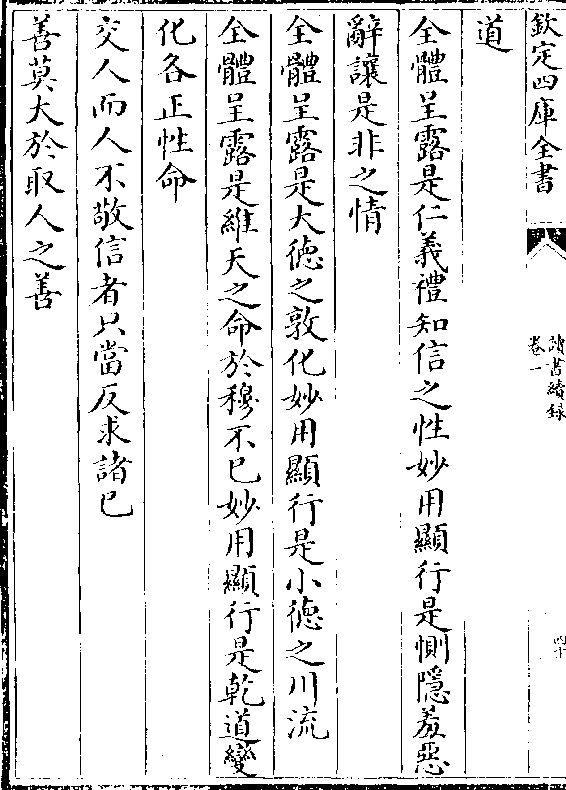 欽定四庫全書
讀書續録
卷一
四十
道
全體呈露是仁義禮知信之性妙用顯行是惻隱羞惡
辭讓是非之情
全體呈露是大德之敦化妙用顯行是小德之川流
全體呈露是維天之命於穆不已妙用顯行是乾道變
化各正性命
交人而人不敬信者只當反求諸已
善莫大於取人之善